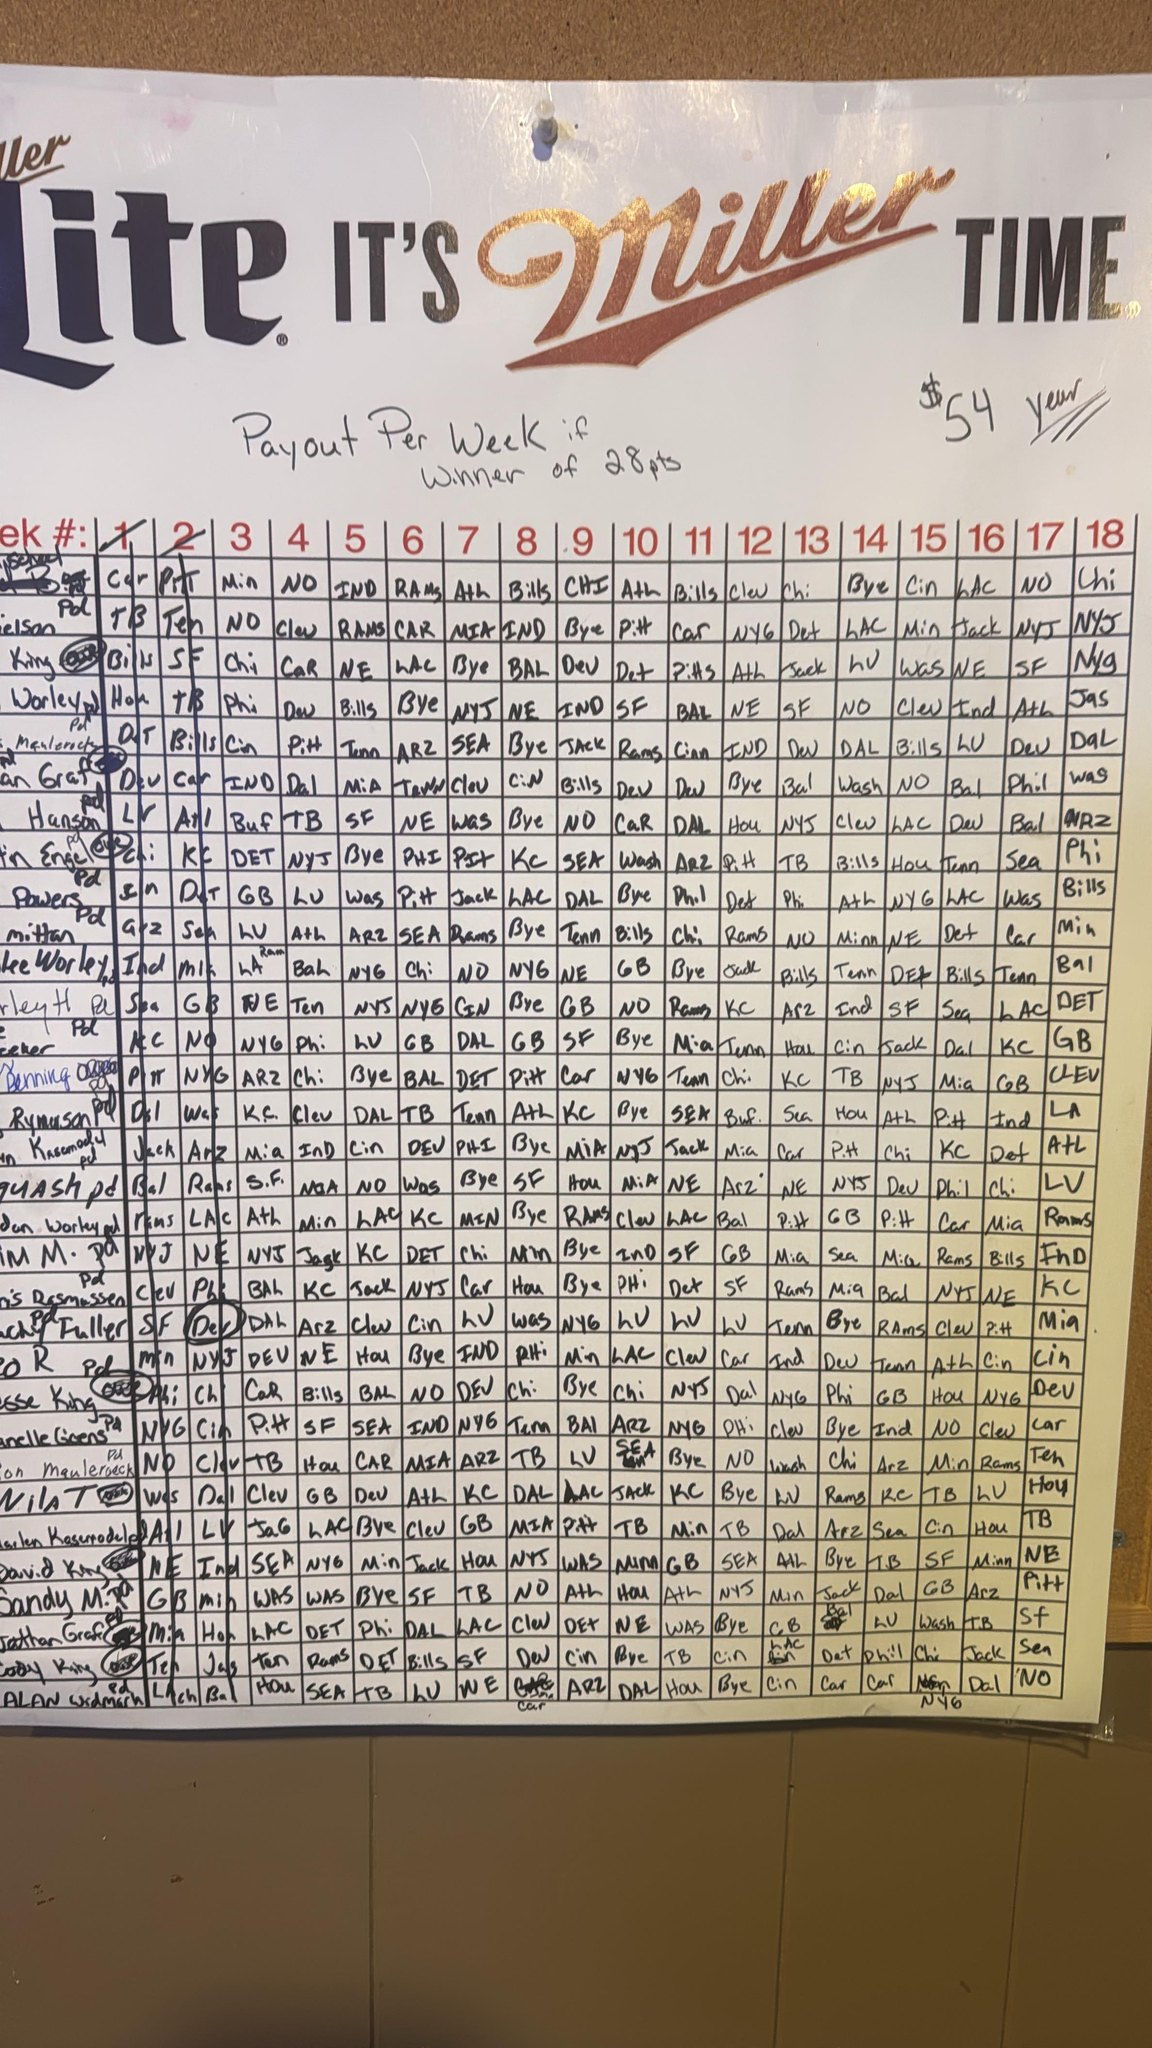 ller
Lite IT'S Miller TIME
$54 year
Payout Per Week if
Winner of 28pts
ek #: 1 2 3 4 5 6 7 8 9 10 11 12 13 14 15 16 17 18
Car Pitt Min NO IND RAMS Ath Bills CHI Ath Bills Clev Chi Bye Cin LAC NO Chi
ielson Pd TB Ten NO Clev RAMS CAR MIA IND Bye Pitt Car NYG Det LAC Min Jack NYJ NYJ
King Bills SF Chi CaR NE LAC Bye BAL Dev Det Pitts Ath Jack LV Was NE SF NYG
Worley pd Hou TB Phi Dev Bills Bye NYJ NE IND SF BAL NE SF NO Clev Ind Ath Jas
Pd Det Bills Cin Pitt Tenn ARZ SEA Bye JACK Rams Cinn IND Dev DAL Bills LV Dev Dal
an Graf Dev Car IND Dal MiA Clev CiN Bills Dev Dev Bye Bal Wash NO Bal Phil was
Hanson pd LV Atl Buf TB SF NE Was Bye NO CaR DAL Hou NYJ Clev LAC Dev Bal ARZ
n Engel pd Chi KC DET NYJ Bye PHI Pitt KC SEA Wash ARZ Pitt TB Bills Hou Tenn Sea Phi
Powers Pd Det GB LV Was Pitt Jack LAC DAL Bye Phil Det Phi Ath NYG LAC Was Bills
mittan Pd Arz Sea LV Ath ARZ SEA Rams Bye Tenn Bills Chi Rams NO Minn NE Det Car Min
lee Worley pd Ind Min LA Ram Bal NYG Chi NO NYG NE GB Bye Jack Bills Tenn DEt Bills Tenn Bal
rley H pd Sea GB NE Ten NYJ NYG CIN Bye GB NO Rams KC Arz Ind SF Sea LAC DET
eeker Pd KC NO NYG Phi LV GB DAL GB SF Bye Mia Tenn Hou Cin Jack Dal KC GB
Denning Pitt NYG ARZ Chi Bye BAL DET Pitt Car NYG Tenn Chi KC TB NYJ Mia GB CLEV
Rymerson pd Dal Was K.C. Clev DAL TB Tenn Ath KC Bye SEA Buf. Sea Hou Ath Pitt Ind LA
n Kasemodel pd Jack Arz Mia IND Cin DEV PHI Bye MiA NYJ Jack Mia Car Pitt Chi KC Det Atl
quash pd Bal Rams S.F. NO Was Bye SF Hou MiA NE Arz NE NYJ Dev Phil Chi LV
dan Worley pd Rams LAC Ath Min LAC KC MIN Bye RAMS Clev LAC Bal Pitt GB Pitt Car Mia Rams
im M. pd NYJ NE NYJ Jack KC DET Chi Min Bye IND SF GB Mia Sea Mia Rams Bills IND
n's Rasmussen Pd Clev Phi BAL KC Jack NYJ Car Hou Bye PHi Det SF Rams Mia Bal NYJ NE KC
achy Fuller pd SF Dev DAL Arz Clev Cin LV Was NYG LV LV LV Tenn Bye RAMS Clev Pitt Mia
o R Pd Min NYJ DEV NE Hou Bye IND PHi Min LAC Clev Car Ind Dev Tenn Ath Cin Cin
esse King Phi Chi CaR Bills BAL NO DEV Chi Bye Chi NYJ Dal NYG Phi GB Hou NYG Dev
anelle Goens Pd NYG Cin Pitt SF SEA IND NYG Tenn BAl ARZ NYG PHi Clev Bye Ind NO Clev Car
on Pd NO Clev TB Hou CAR MIA ARZ TB LV SEA Bye NO Wash Chi Arz Min Rams Ten
Nila T Was Dal Clev GB Dev Ath KC DAL LAC JACK KC Bye LV Rams KC TB LV Hou
arlen Kasemodel pd Atl LV JaG LAC Bye Clev GB MIA Pitt TB Min TB Dal Arz Sea Cin Hou TB
David King NE Ind SEA NYG Min Jack Hou NYJ WAS Minn GB SEA Ath Bye TB SF Minn NE
Sandy M. pd GB Min WAS WAS Bye SF TB NO Ath Hou Ath NYJ Min Jack Dal GB Arz Pitt
Graf pd Mia Hou LAC DET Phi DAL LAC Clev DEt NE WAS Bye GB Bal LV Wash TB Sf
Cody King Ten Jag Ten Rams DET Bills SF Dev Cin Bye TB Cin LAC Det Phill Chi Jack Sea
ALAN Widmark pd Bal Hou SEA TB LV NE Car ARZ DAL Hou Bye Cin Car Car NYG Dal NO